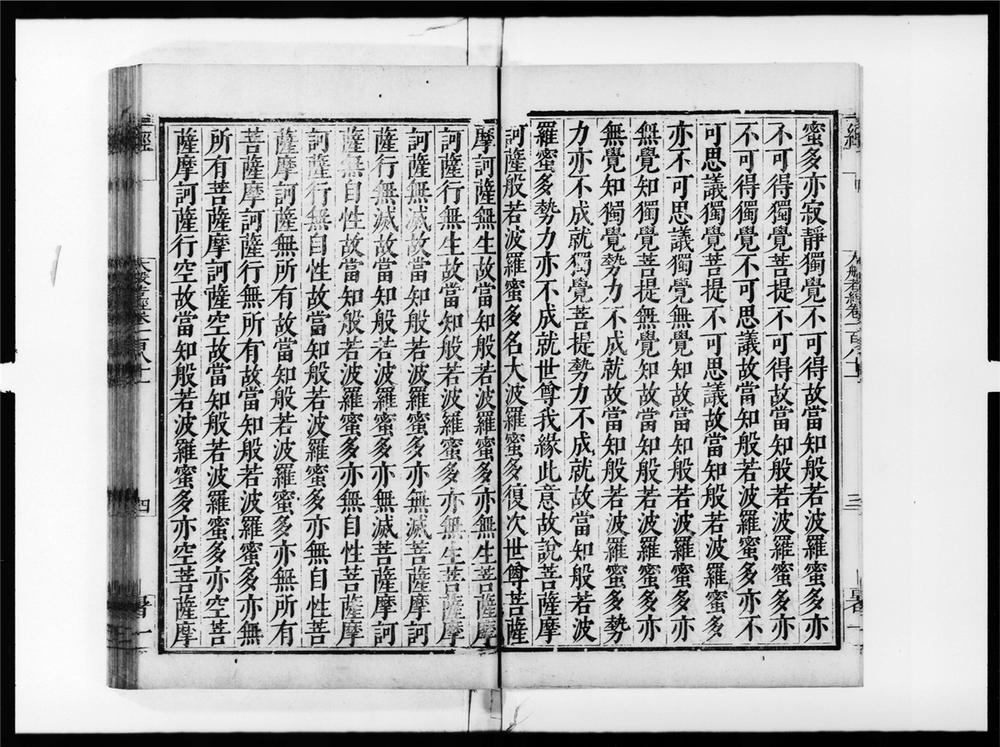 蜜多亦寂靜獨覺不可得故當知般若波羅蜜多亦
不可得獨覺菩提不可得故當知般若波羅蜜多亦
不可得獨覺不可思議故當知般若波羅蜜多亦不
可思議獨覺菩提不可思議故當知般若波羅蜜多
亦不可思議獨覺無覺知故當知般若波羅蜜多亦
無覺知獨覺菩提無覺知故當知般若波羅蜜多亦
無覺知獨覺勢力不成就故當知般若波羅蜜多勢
力亦不成就獨覺菩提勢力不成就故當知般若波
羅蜜多勢力亦不成就世尊我緣此意故說菩薩摩
訶薩般若波羅蜜多名大波羅蜜多復次世尊菩薩
摩訶薩無生故當知般若波羅蜜多亦無生菩薩摩
訶薩行無生故當知般若波羅蜜多亦無生菩薩摩
訶薩無滅故當知般若波羅蜜多亦無滅菩薩摩訶
薩行無滅故當知般若波羅蜜多亦無滅菩薩摩訶
薩無自性故當知般若波羅蜜多亦無自性菩薩摩
訶薩行無自性故當知般若波羅蜜多亦無自性菩
薩摩訶薩無所有故當知般若波羅蜜多亦無所有
菩薩摩訶薩行無所有故當知般若波羅蜜多亦無
所有菩薩摩訶薩空故當知般若波羅蜜多亦空菩
薩摩訶薩行空故當知般若波羅蜜多亦空菩薩摩